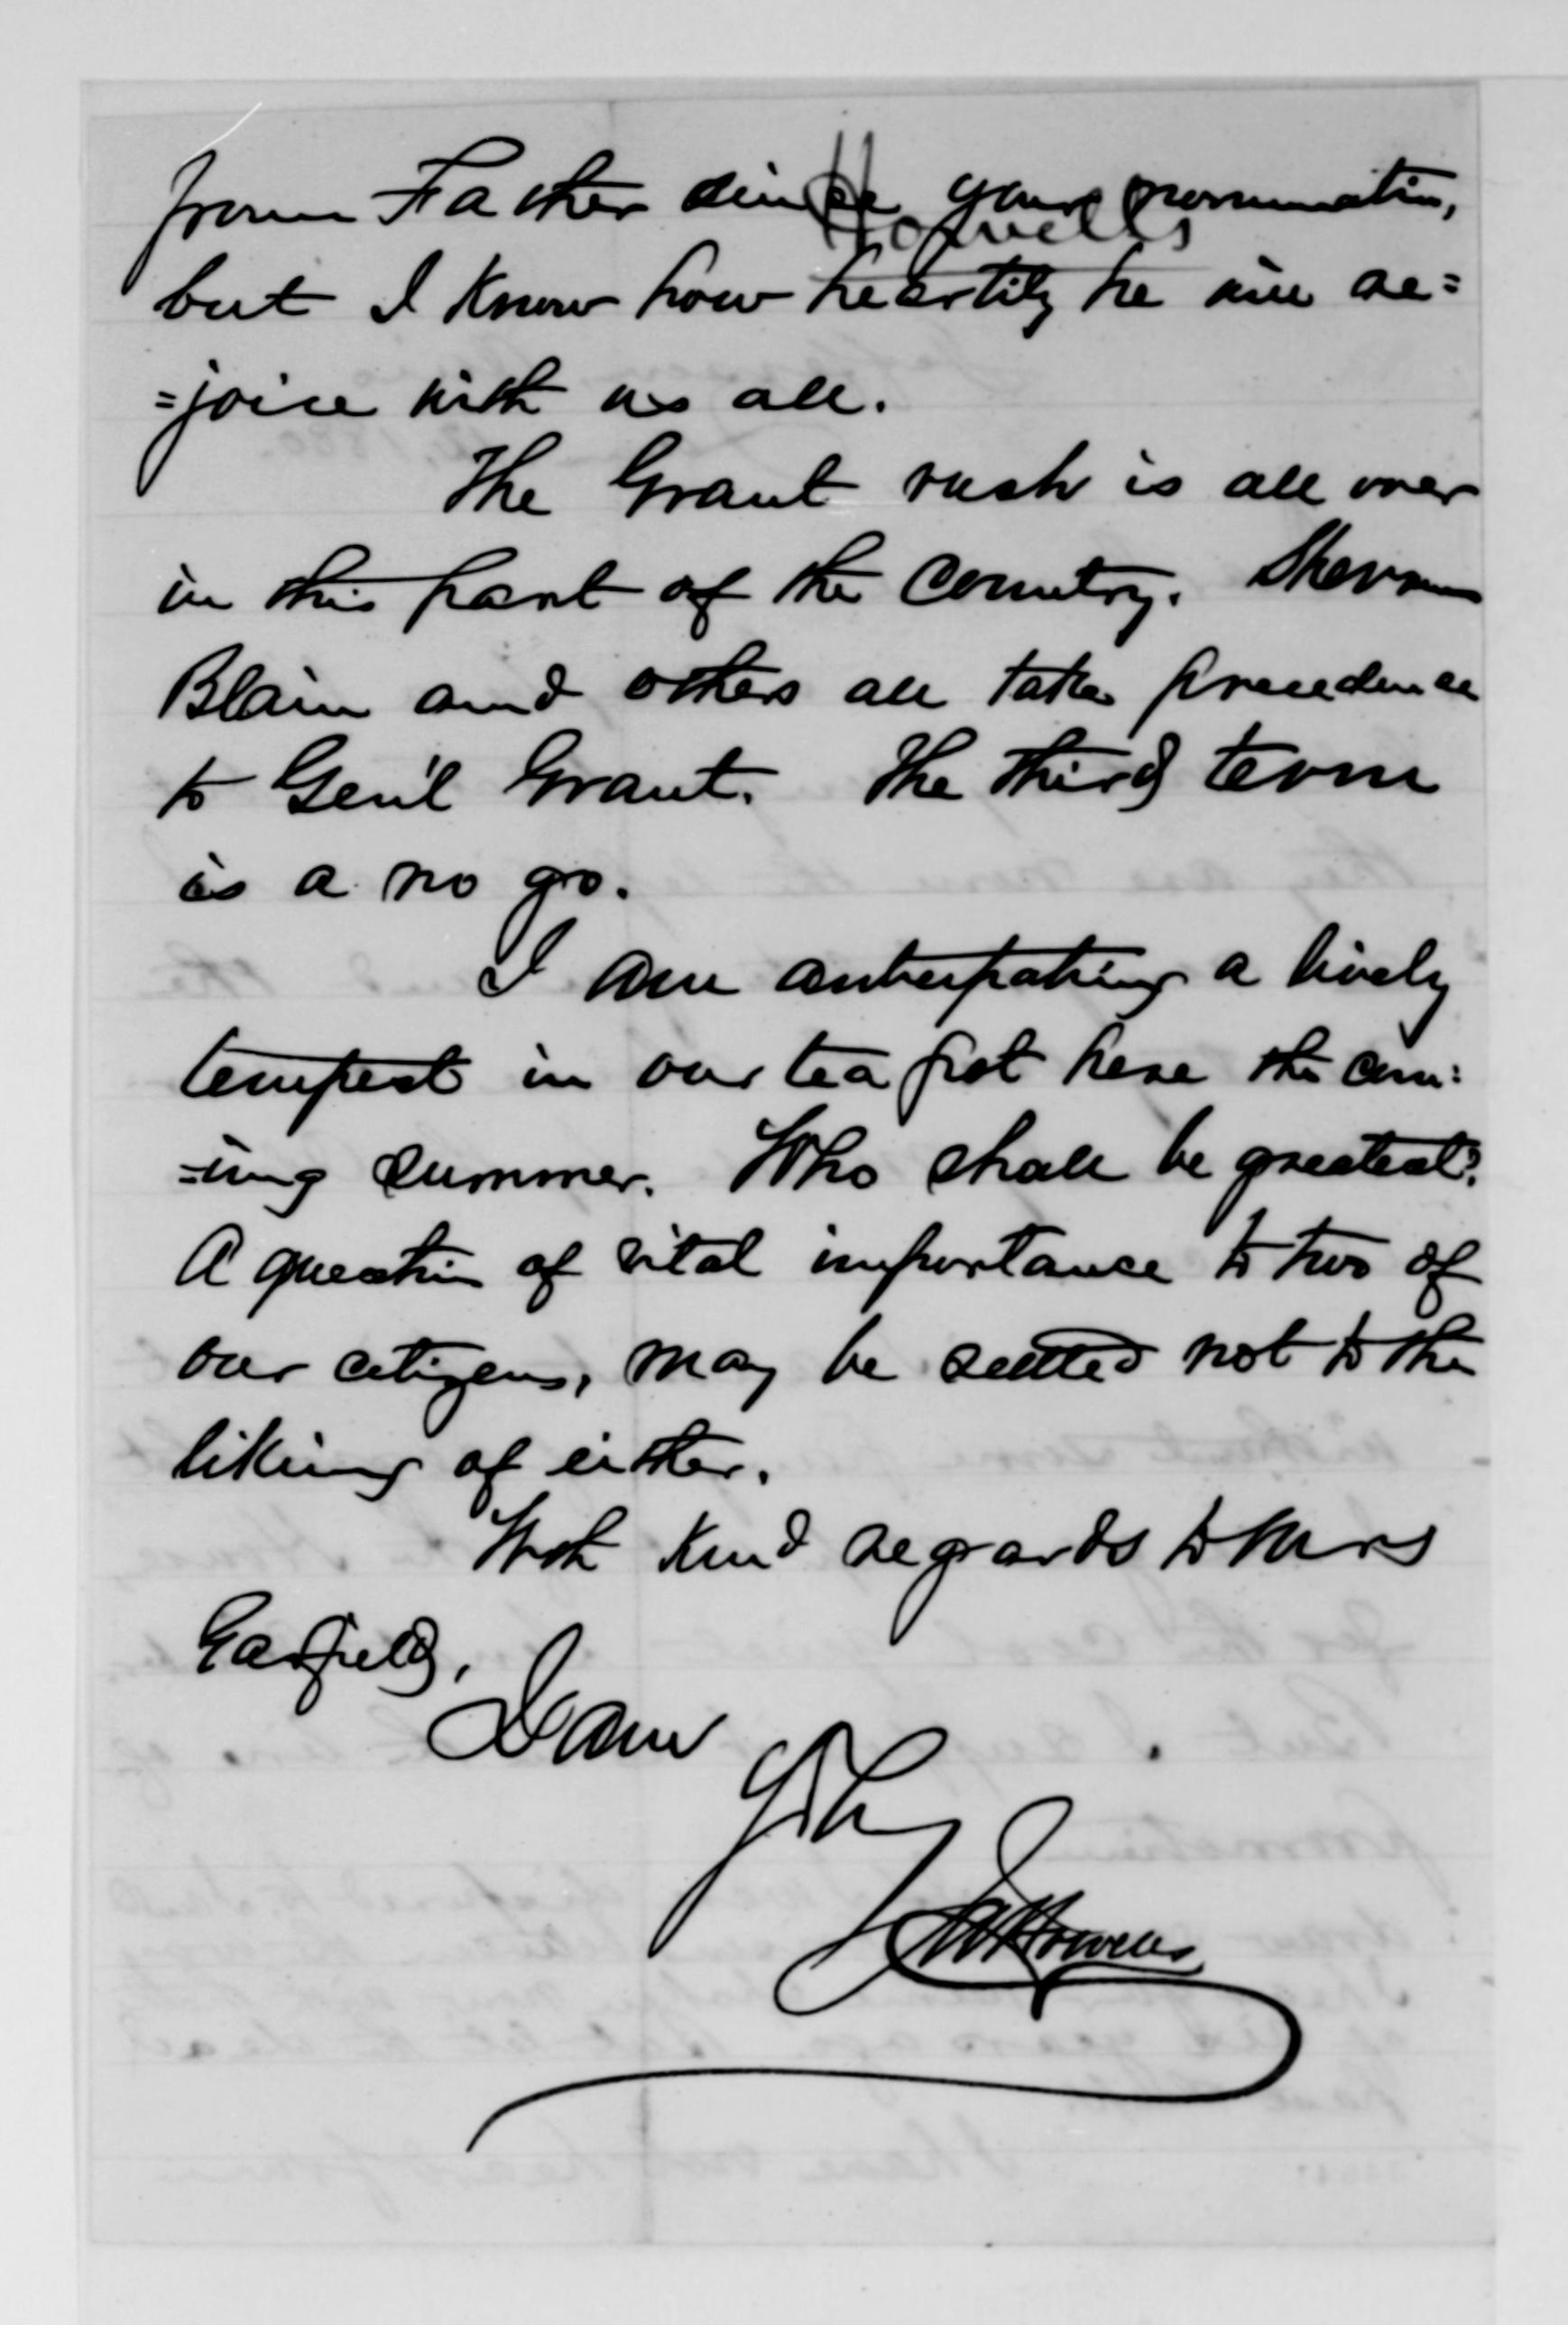 from Father since your nomination,
Howells
but I know how heartily he will re=
=joice with us all.
The Grant rush is all over
in this part of the country. Sherman
Blain and others all take precedence
to Gen'l Grant. The third term
is a no go.
I am anticipating a lively
tempest in our tea pot here the com=
=ing summer. Who shall be greatest?
A question of vital importance to two of
our citizens, may be settled not to the
liking of either.
With kind regards to Mrs
Garfield,
I am
Howells